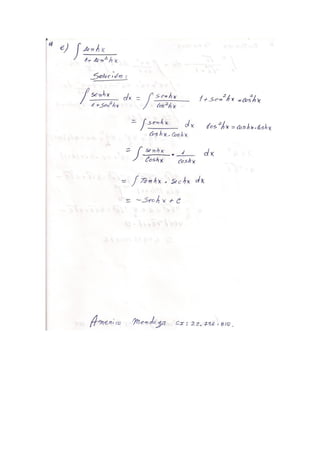 e) ∫ senhx / 1+senh²hx
Solución:
∫ senhx / 1+sen²hx dx = ∫ senhx / cos²hx 1+sen²hx = cos²hx
= ∫ senhx / Coshx.Coshx dx cos²hx = coshx.coshx
= ∫ senhx / Coshx . 1 / coshx dx
= ∫ Tanhx . Sechx dx
= -Sechx + C
Americo Mendoza